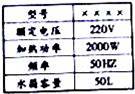 型号 ××××
额定电压 220V
加热功率 2000W
频率 50HZ
水箱容量 50L